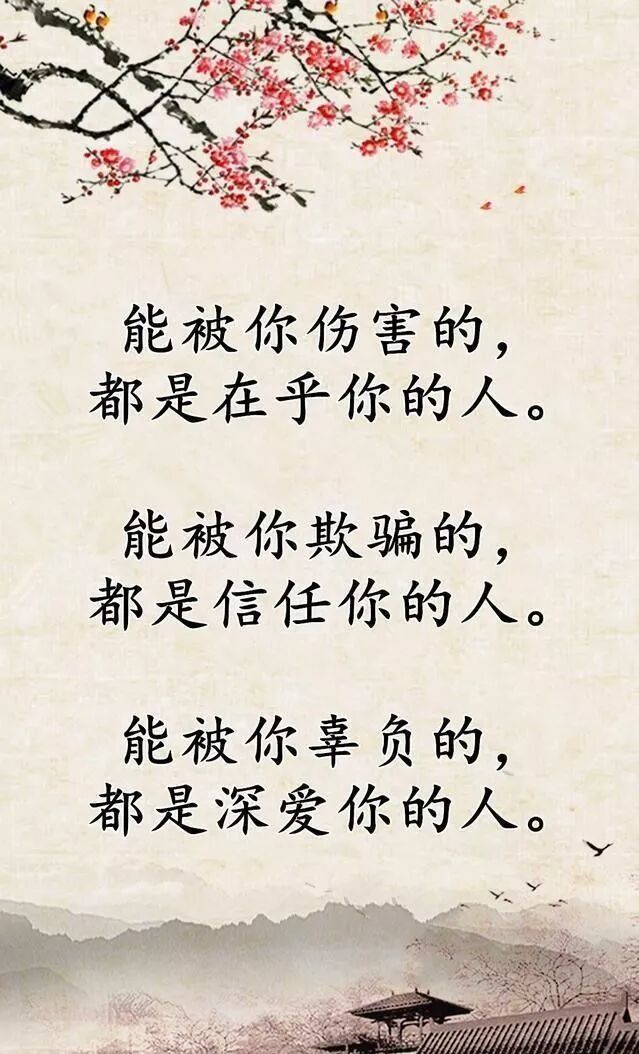 能被你伤害的，
都是在乎你的人。
能被你欺骗的，
都是信任你的人。
能被你辜负的，
都是深爱你的人。